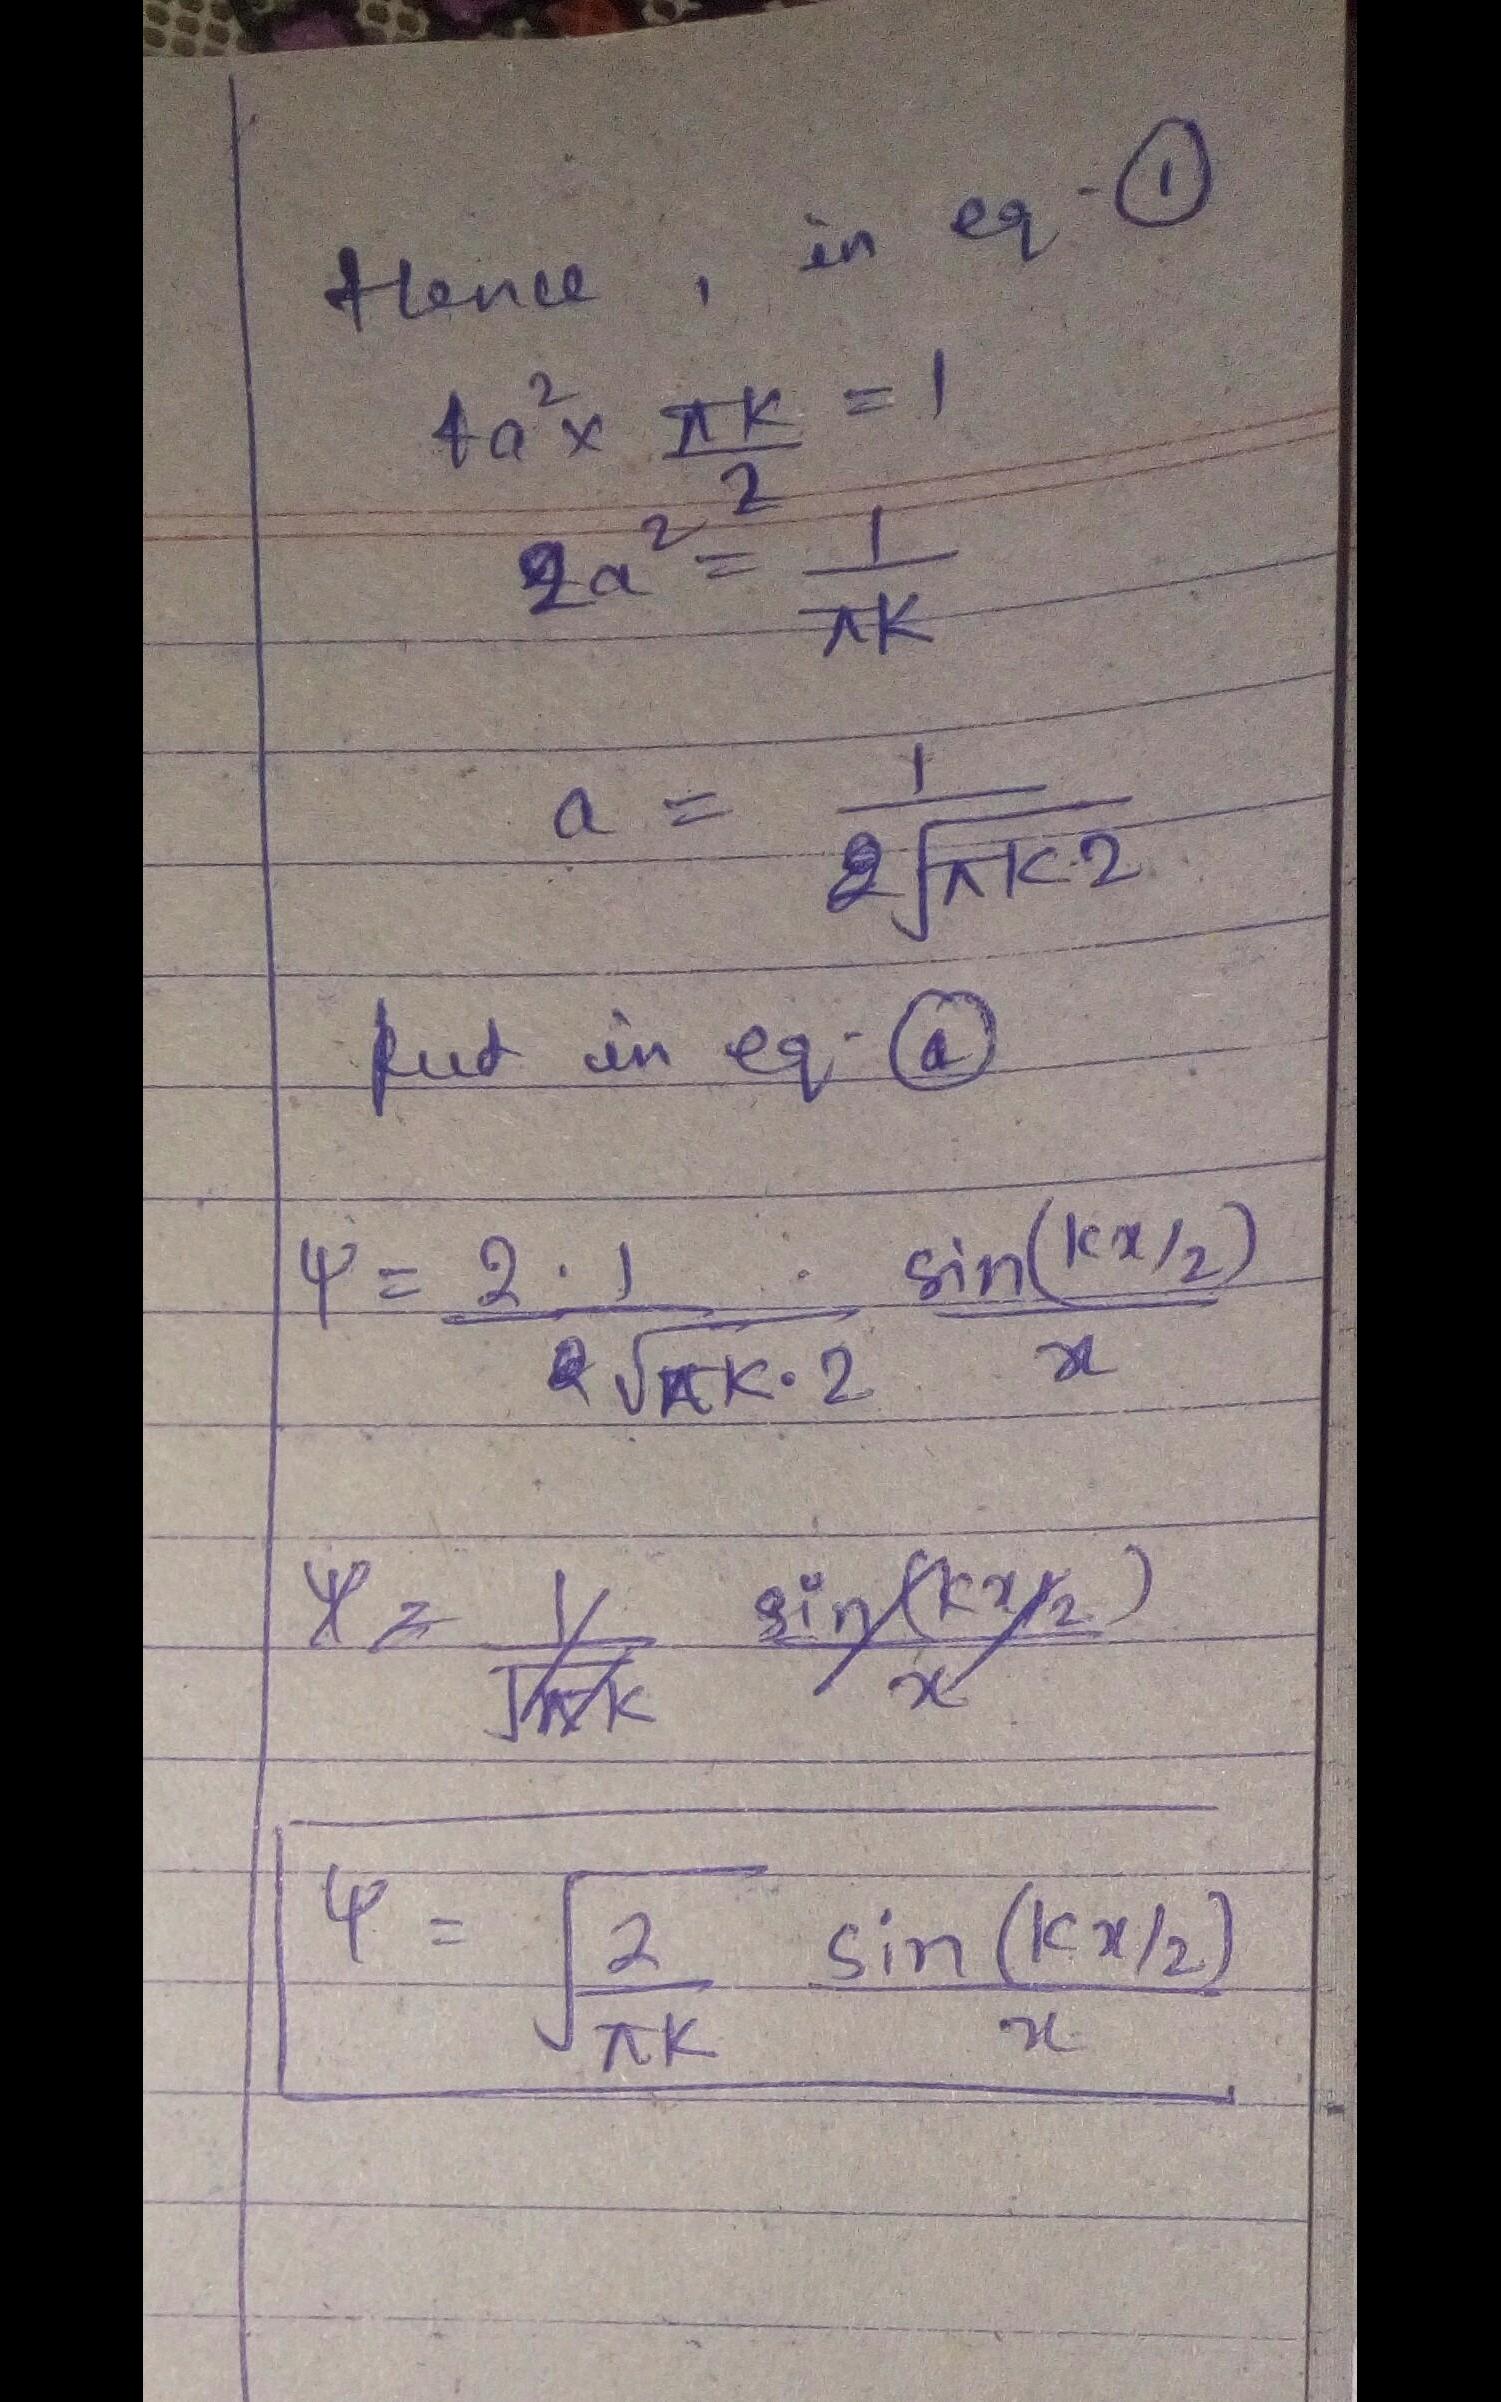 Hence, in eq-①
4a² x πK/2 = 1
2a² = 1/πK
a = 1/2√πK·2
Put in eq-ⓐ
Ψ = 2·1/2√πK·2 · sin(Kx/2)/x
Ψ = 1/√πK sin(Kx/2)/x
Ψ = √2/πK sin(Kx/2)/x